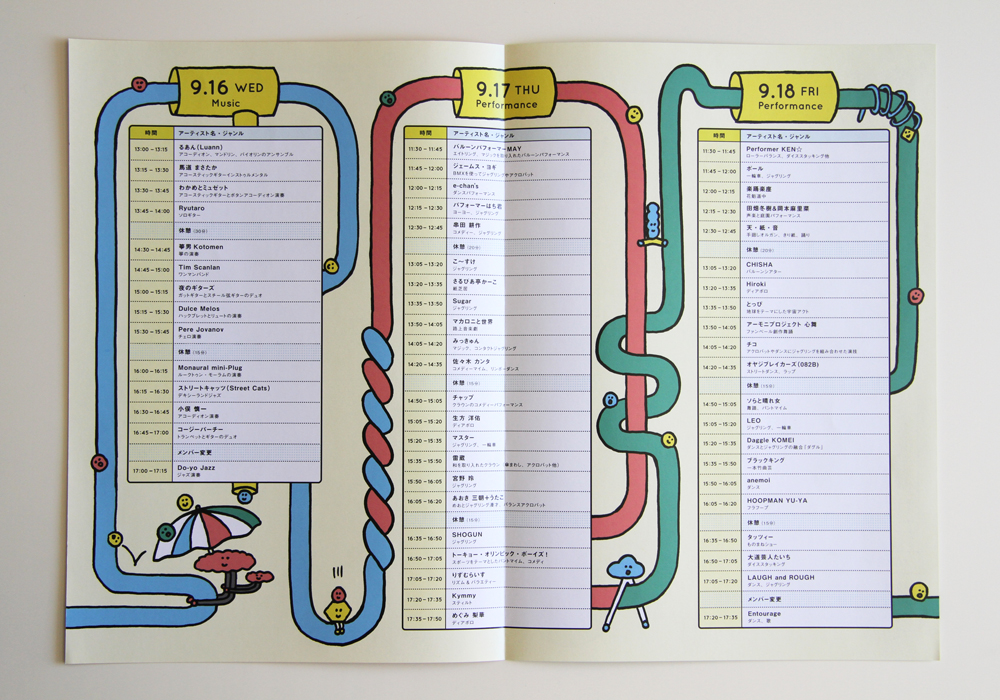 9.16 WED
Music
時間 アーティスト名・ジャンル
13:00 – 13:15 るあん(Luann)
アコーディオン、マンドリン、バイオリンのアンサンブル
13:15 – 13:30 馬道 まさたか
アコースティックギターインストゥルメンタル
13:30 – 13:45 わかめとミュゼット
アコースティックギターとボタンアコーディオン演奏
13:45 – 14:00 Ryutaro
ソロギター
休憩 (30分)
14:30 – 14:45 箏男 Kotomen
箏の演奏
14:45 – 15:00 Tim Scanlan
ワンマンバンド
15:00 – 15:15 夜のギターズ
ガットギターとスチール弦ギターのデュオ
15:15 – 15:30 Dulce Melos
ハックブレットとリュートの演奏
15:30 – 15:45 Pere Jovanov
チェロ演奏
休憩 (15分)
16:00 – 16:15 Monaural mini-Plug
ルークトゥン・モーラムの演奏
16:15 – 16:30 ストリートキャッツ(Street Cats)
デキシーランドジャズ
16:30 – 16:45 小俣 慎一
アコーディオン演奏
16:45 – 17:00 コージーパーチー
トランペットとギターのデュオ
メンバー変更
17:00 – 17:15 Do-yo Jazz
ジャズ演奏
9.17 THU
Performance
時間 アーティスト名・ジャンル
11:30 – 11:45 バルーンパフォーマーMAY
11:45 – 12:00 ジェームス・ヨギ
BMXを使ってジャグリングやアクロバット
12:00 – 12:15 e-chan's
ダンスパフォーマンス
12:15 – 12:30 パフォーマーはち君
ヨーヨー、ジャグリング
12:30 – 12:45 串田 耕作
コメディー、ジャグリング
休憩 (20分)
13:05 – 13:20 こ〜すけ
ジャグリング
13:20 – 13:35 さるびあ亭かーこ
紙芝居
13:35 – 13:50 Sugar
ジャグリング
13:50 – 14:05 マカロニと世界
路上音楽劇
14:05 – 14:20 みっきゅん
マジック、コンタクトジャグリング
14:20 – 14:35 佐々木 カンタ
休憩 (15分)
14:50 – 15:05 チャップ
クラウンのコメディーパフォーマンス
15:05 – 15:20 生方 洋佑
ディアボロ
15:20 – 15:35 マスター
ジャグリング、一輪車
15:35 – 15:50 雷蔵
15:50 – 16:05 宮野 玲
ジャグリング
16:05 – 16:20 あおき 三朝+うたこ
休憩 (15分)
16:35 – 16:50 SHOGUN
ジャグリング
16:50 – 17:05 トーキョー・オリンピック・ボーイズ!
スポーツをテーマとしたパントマイム、コメディ
17:05 – 17:20 りずむらいす
リズム & バラエティー
17:20 – 17:35 Kymmy
スティルト
17:35 – 17:50 めぐみ 梨華
ディアボロ
9.18 FRI
Performance
時間 アーティスト名・ジャンル
11:30 – 11:45 Performer KEN☆
ローラーバランス、ダイススタッキング他
11:45 – 12:00 ポール
一輪車、ジャグリング
12:00 – 12:15 楽踊楽座
花魁道中
12:15 – 12:30 田畑冬樹&岡本麻里菜
12:30 – 12:45 天・紙・音
手回しオルガン、きり紙、踊り
休憩 (20分)
13:05 – 13:20 CHISHA
バルーンシアター
13:20 – 13:35 Hiroki
ディアボロ
13:35 – 13:50 とっぴ
地球をテーマにした宇宙アクト
13:50 – 14:05 アーモニプロジェクト 心舞
ファンベール創作舞踊
14:05 – 14:20 チコ
アクロバットやダンスにジャグリングを組み合わせた演技
14:20 – 14:35 オヤジブレイカーズ(082B)
ストリートダンス、ラップ
休憩 (15分)
14:50 – 15:05 ソらと晴れ女
舞踏、パントマイム
15:05 – 15:20 LEO
ジャグリング、一輪車
15:20 – 15:35 Daggle KOMEI
ダンスとジャグリングの融合(ダグル)
15:35 – 15:50 ブラックキング
一本竹曲芸
15:50 – 16:05 anemoi
ダンス
16:05 – 16:20 HOOPMAN YU-YA
フラフープ
休憩 (15分)
16:35 – 16:50 タッフィー
ものまねショー
16:50 – 17:05 大道芸人たいち
ダイススタッキング
17:05 – 17:20 LAUGH and ROUGH
ダンス、ジャグリング
メンバー変更
17:20 – 17:35 Entourage
ダンス、歌